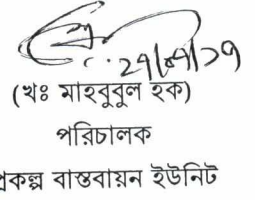 ২৭/০৭/১৭
(খঃ মাহবুবুল হক)
পরিচালক
প্রকল্প বাস্তবায়ন ইউনিট